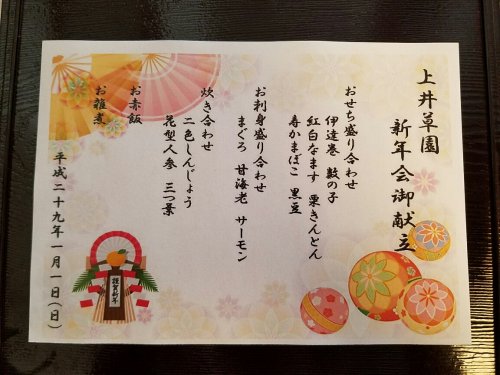 上井草園
新年会御献立
おせち盛り合わせ
伊達巻 数の子
紅白なます 栗きんとん
寿かまぼこ 黒豆
お刺身盛り合わせ
まぐろ 甘海老 サーモン
炊き合わせ
二色しんじょう
花型人参 三つ葉
お赤飯
お雑煮
平成二十九年一月一日(日)
謹賀新年